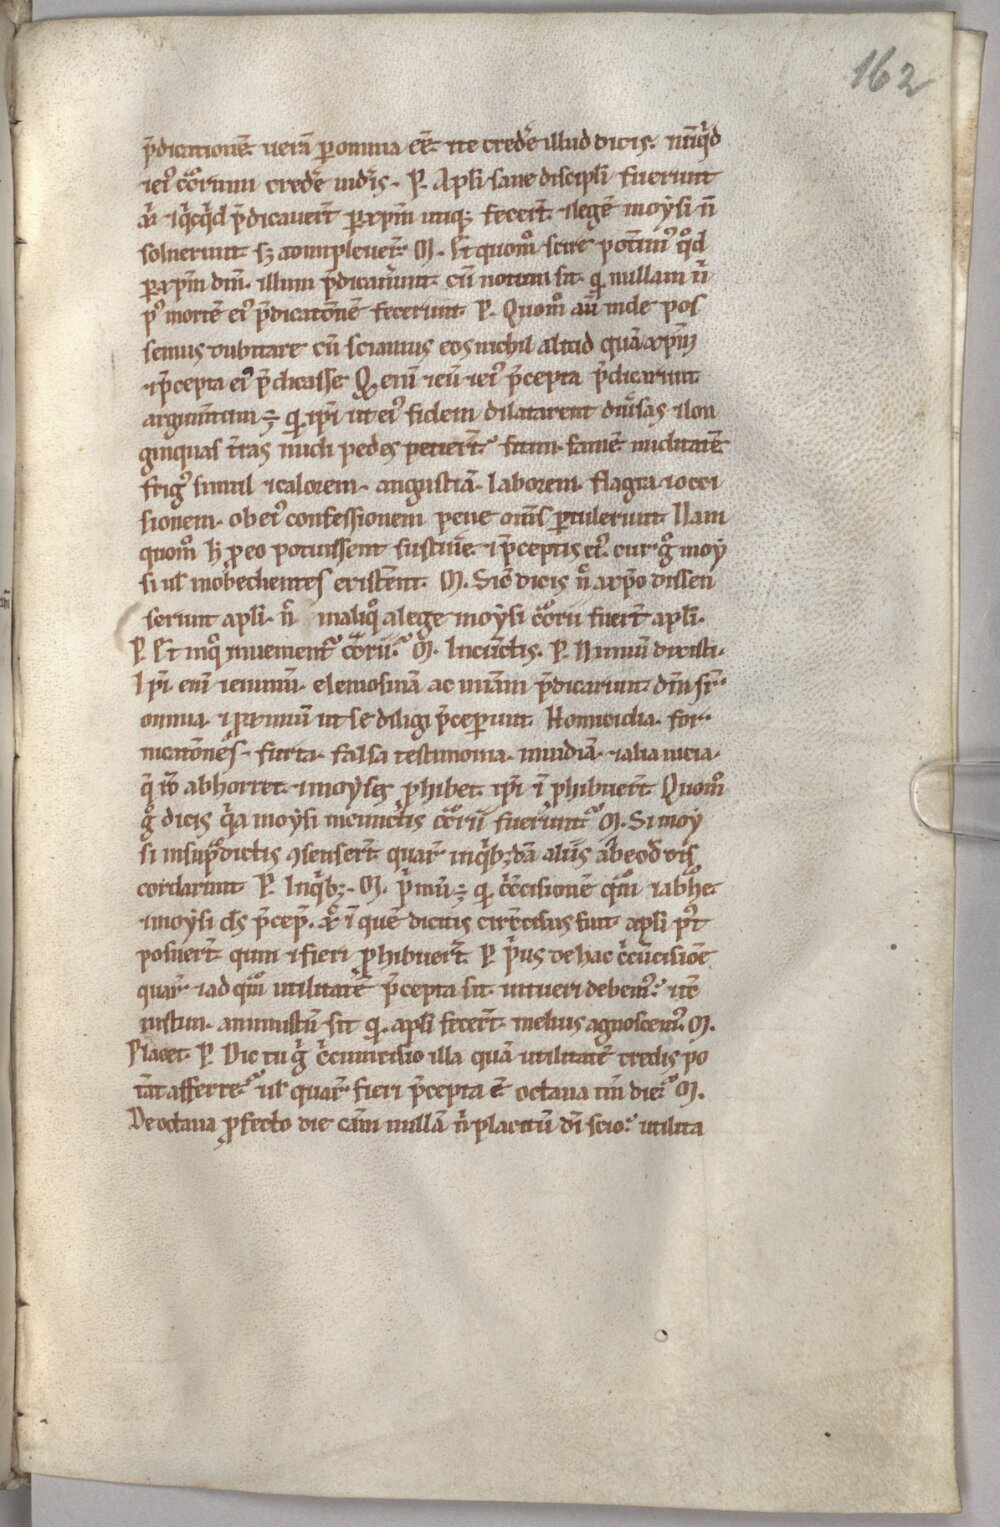 162
p̄dicationē. uerā ꝑ omnia eē. ⁊ te credr̄e illud dicis. nūq̇d
⁊ ei᷒ ꝯ̄trarium credr̄e uidr̄is. P. Apl̄i sane discipl̄i fuerunt
⁊ q̇cq̇d p̄dicauert̄ ꝑ xp̄m utiq; fecert̄. ⁊ legē moẏsi n̄
soluerunt sꝫ compleuer̄. M. Et quom̊ scire potim᷒ qd̊
ꝑ xp̄m dn̄m. illum p̄dicauerunt. cū notum sit. q nullam n̄
p᷒ mortē ei᷒ p̄dicatōnē fecerunt. P. Quom̊ aū inde pos
semus dubitare cū sciamus eos nichil aliud quā xp̄m
⁊ p̄cepta ei᷒ p̄dicasse. Qd̊ enī ⁊ eū ⁊ ei᷒ p̄cepta p̄dicarunt
argum̄tum ꝫ q ip̄i ut ei᷒ fidem dilatarent diūsas ⁊ lon
ginquas t̄ras nudi pedes petiert̄. sitim. famē. nuditatē
frig᷒ simul ⁊ calorem. angustiā. laborem. flagra. ⁊ occi
sionem. ob ei᷒ confessionem pene om̄s ꝑtulerunt. Nam
quom̊ h̄ ꝓ eo potuissent sustinr̄e. ⁊ p̄ceptis ei᷒. cur g̊ moẏ
si ul̄ inobedientes existerent. M. Sic̄ dicis n̊ a xp̄o dissen
serunt apl̄i. n̄ in aliq̊ a lege moẏsi ꝯ̄trarii fuert̄ apl̄i.
P. Et in q̊ inueniunt᷑ ꝯ̄trarii. M. In cūctis. P. Nimiū dixisti.
Ip̄i. enī ieiunium. elemosinā ac uitam p̄dicarunt. dm̄ sr̄
omnia. ⁊ proximū ut se diligi p̄ceperunt. Homicidia. for
nicatōnes. furta. falsa testimonia. inuidiā. ⁊ alia uicia.
q̄ ds̄ abhorret. ⁊ moẏses ꝓhibet. ip̄i ⁊ ꝓhibuert̄. Quom̊
g̊ dicis q̇a moẏsi in cunctis ꝯ̄trarii fuerunt. M. Si moẏ
si in sup̄dictis ꝯsensert̄. quar̄ in q̇bꝫdā aliis ab eo dis
cordarunt. P. In q̇bꝫ. M. Ṗmū ꝫ q c̄cūcisionē
⁊ moẏsi ds̄ p̄cep. ⁊ quē dicitis circūcisus fuit. apl̄i p̄t
posuert̄. quin ⁊ fieri ꝓhibuert̄. P. Ṗus de hac c̄cūcisiōe
quar̄ ⁊ ad qm̄ utilitatē p̄cepta sit. intueri debem᷒. ⁊ tc̄
iustum. an iniustū sit q apl̄i fecert̄. melius agnoscem᷒. M.
Placet. P. Dic tu g̊ c̄cumcisio illa quā utilitatē credis po
tuit afferre. ul̄ quar̄ fieri p̄cepta ē octaua tm̄ die. M.
De octaua ꝓfecto die cām nullā n̄ placitū dī scio. utilita